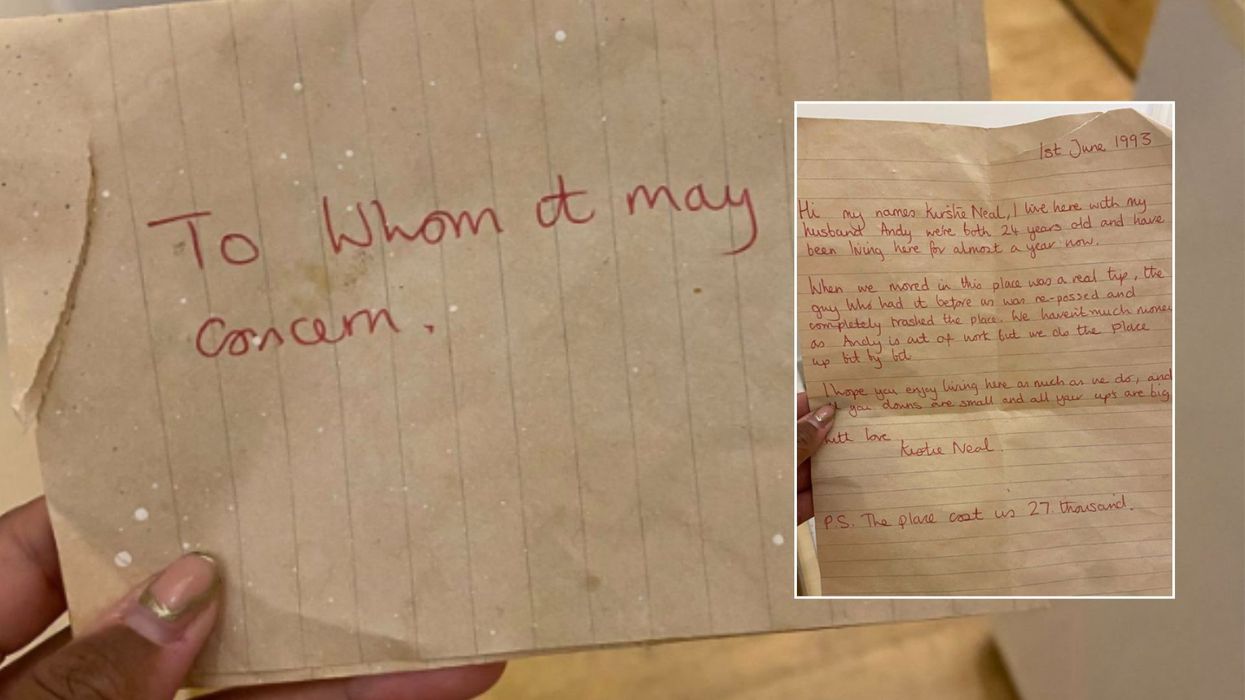 To Whom it may
concern.
1st June 1993
Hi my names Kirstie Neal, I live here with my
husband Andy we're both 24 years old and have
been living here for almost a year now.
When we moved in this place was a real tip, the
guy who had it before us was re-possed and
completely trashed the place. We haven't much money
as Andy is out of work but we do the place
up bit by bit
I hope you enjoy living here as much as we do, and
you downs are small and all your up's are big
with love
Kirstie Neal.
P.S. The place cost us 27 thousand.